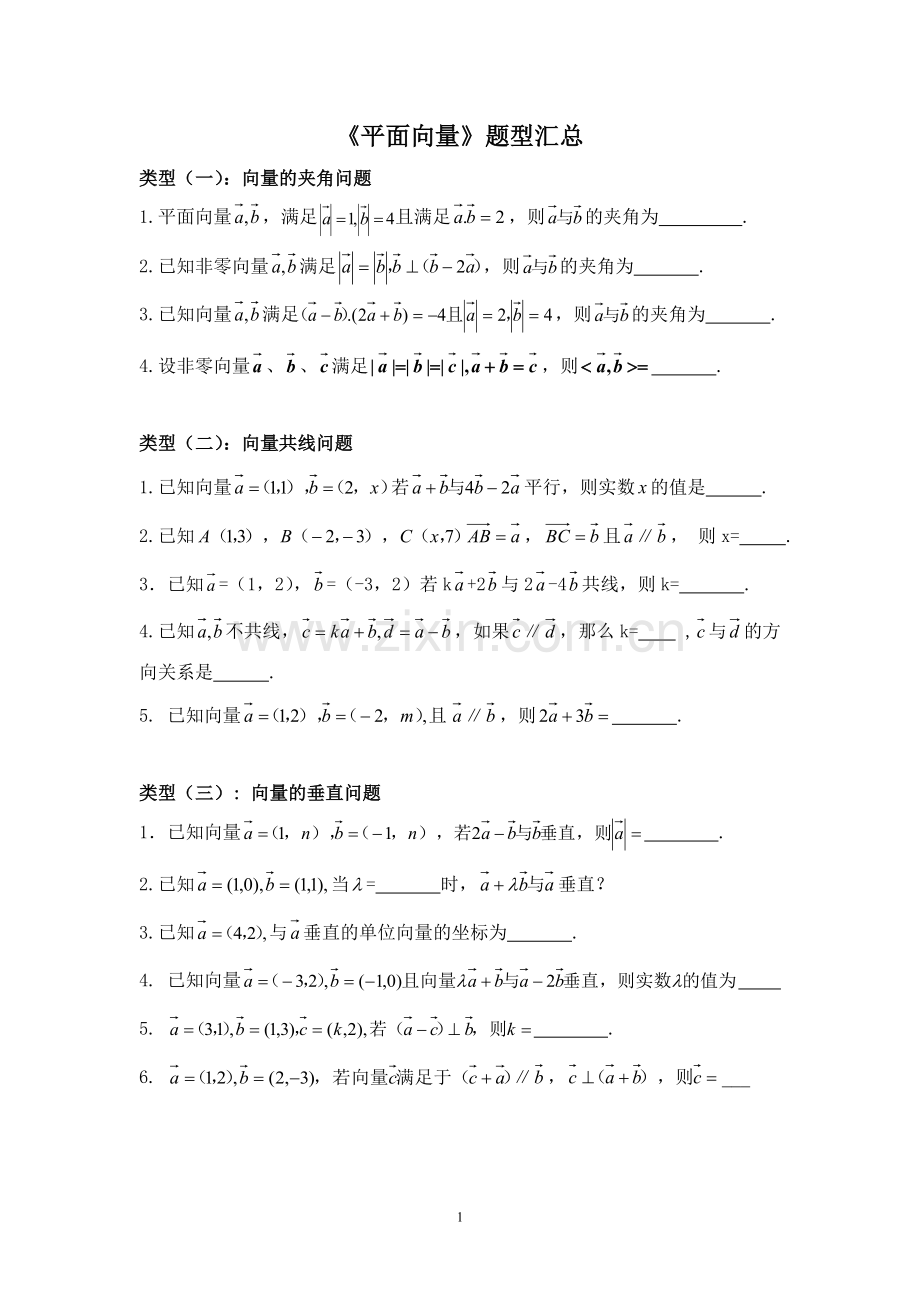 《平面向量》题型汇总
类型（一）：向量的夹角问题
1.平面向量a⃗,b⃗，满足|a⃗|=1,|b⃗|=4且满足a⃗.b⃗=2，则a⃗与b⃗的夹角为________.
2.已知非零向量a⃗,b⃗满足|a⃗|=|b⃗|，b⃗⊥（b⃗−2a⃗），则a⃗与b⃗的夹角为______.
3.已知向量a⃗,b⃗满足（a⃗−b⃗）.(2a⃗+b⃗)=−4且|a⃗|=2，|b⃗|=4，则a⃗与b⃗的夹角为______.
4.设非零向量a⃗、b⃗、c⃗满足|a⃗|=|b⃗|=|c⃗|,a⃗+b⃗=c⃗，则<a⃗,b⃗>=______.
类型（二）：向量共线问题
1.已知向量a⃗=（1,1），b⃗=（2，x）若a⃗+b⃗与4b⃗−2a⃗平行，则实数x的值是_____.
2.已知A（1,3），B（−2，−3），C（x,7）AB⃗=a⃗，BC⃗=b⃗且a⃗∥b⃗， 则x=____.
3. 已知a⃗=（1，2），b⃗=（-3，2）若ka⃗+2b⃗与2a⃗-4b⃗共线，则k=_____.
4.已知a⃗,b⃗不共线，c⃗=ka⃗+b⃗,d⃗=a⃗−b⃗，如果c⃗∥d⃗，那么k=___ ,c⃗与d⃗的方
向关系是_____.
5. 已知向量a⃗=（1，2），b⃗=（−2，m）,且a⃗∥b⃗，则2a⃗+3b⃗=______.
类型（三）: 向量的垂直问题
1. 已知向量a⃗=（1，n），b⃗=（−1，n），若2a⃗−b⃗与b⃗垂直，则|a⃗|=_______.
2.已知a⃗=(1,0),b⃗=(1,1),当λ=______时，a⃗+λb⃗与a⃗垂直？
3.已知a⃗=（4，2）,与a⃗垂直的单位向量的坐标为______.
4. 已知向量a⃗=（−3，2）,b⃗=(−1,0)且向量λa⃗+b⃗与a⃗−2b⃗垂直，则实数λ的值为____
5. a⃗=（3，1）,b⃗=(1,3)，c⃗=(k,2),若（a⃗−c⃗）⊥b⃗，则k=_______.
6. a⃗=（1，2）,b⃗=(2,−3)，若向量c⃗满足于（c⃗+a⃗）∥b⃗，c⃗⊥（a⃗+b⃗），则c⃗=___
www.zixin.com.cn
1